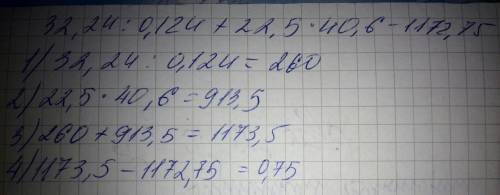 32,24 : 0,124 + 22,5 · 40,6 - 1172,75
1) 32,24 : 0,124 = 260
2) 22,5 · 40,6 = 913,5
3) 260 + 913,5 = 1173,5
4) 1173,5 - 1172,75 = 0,75